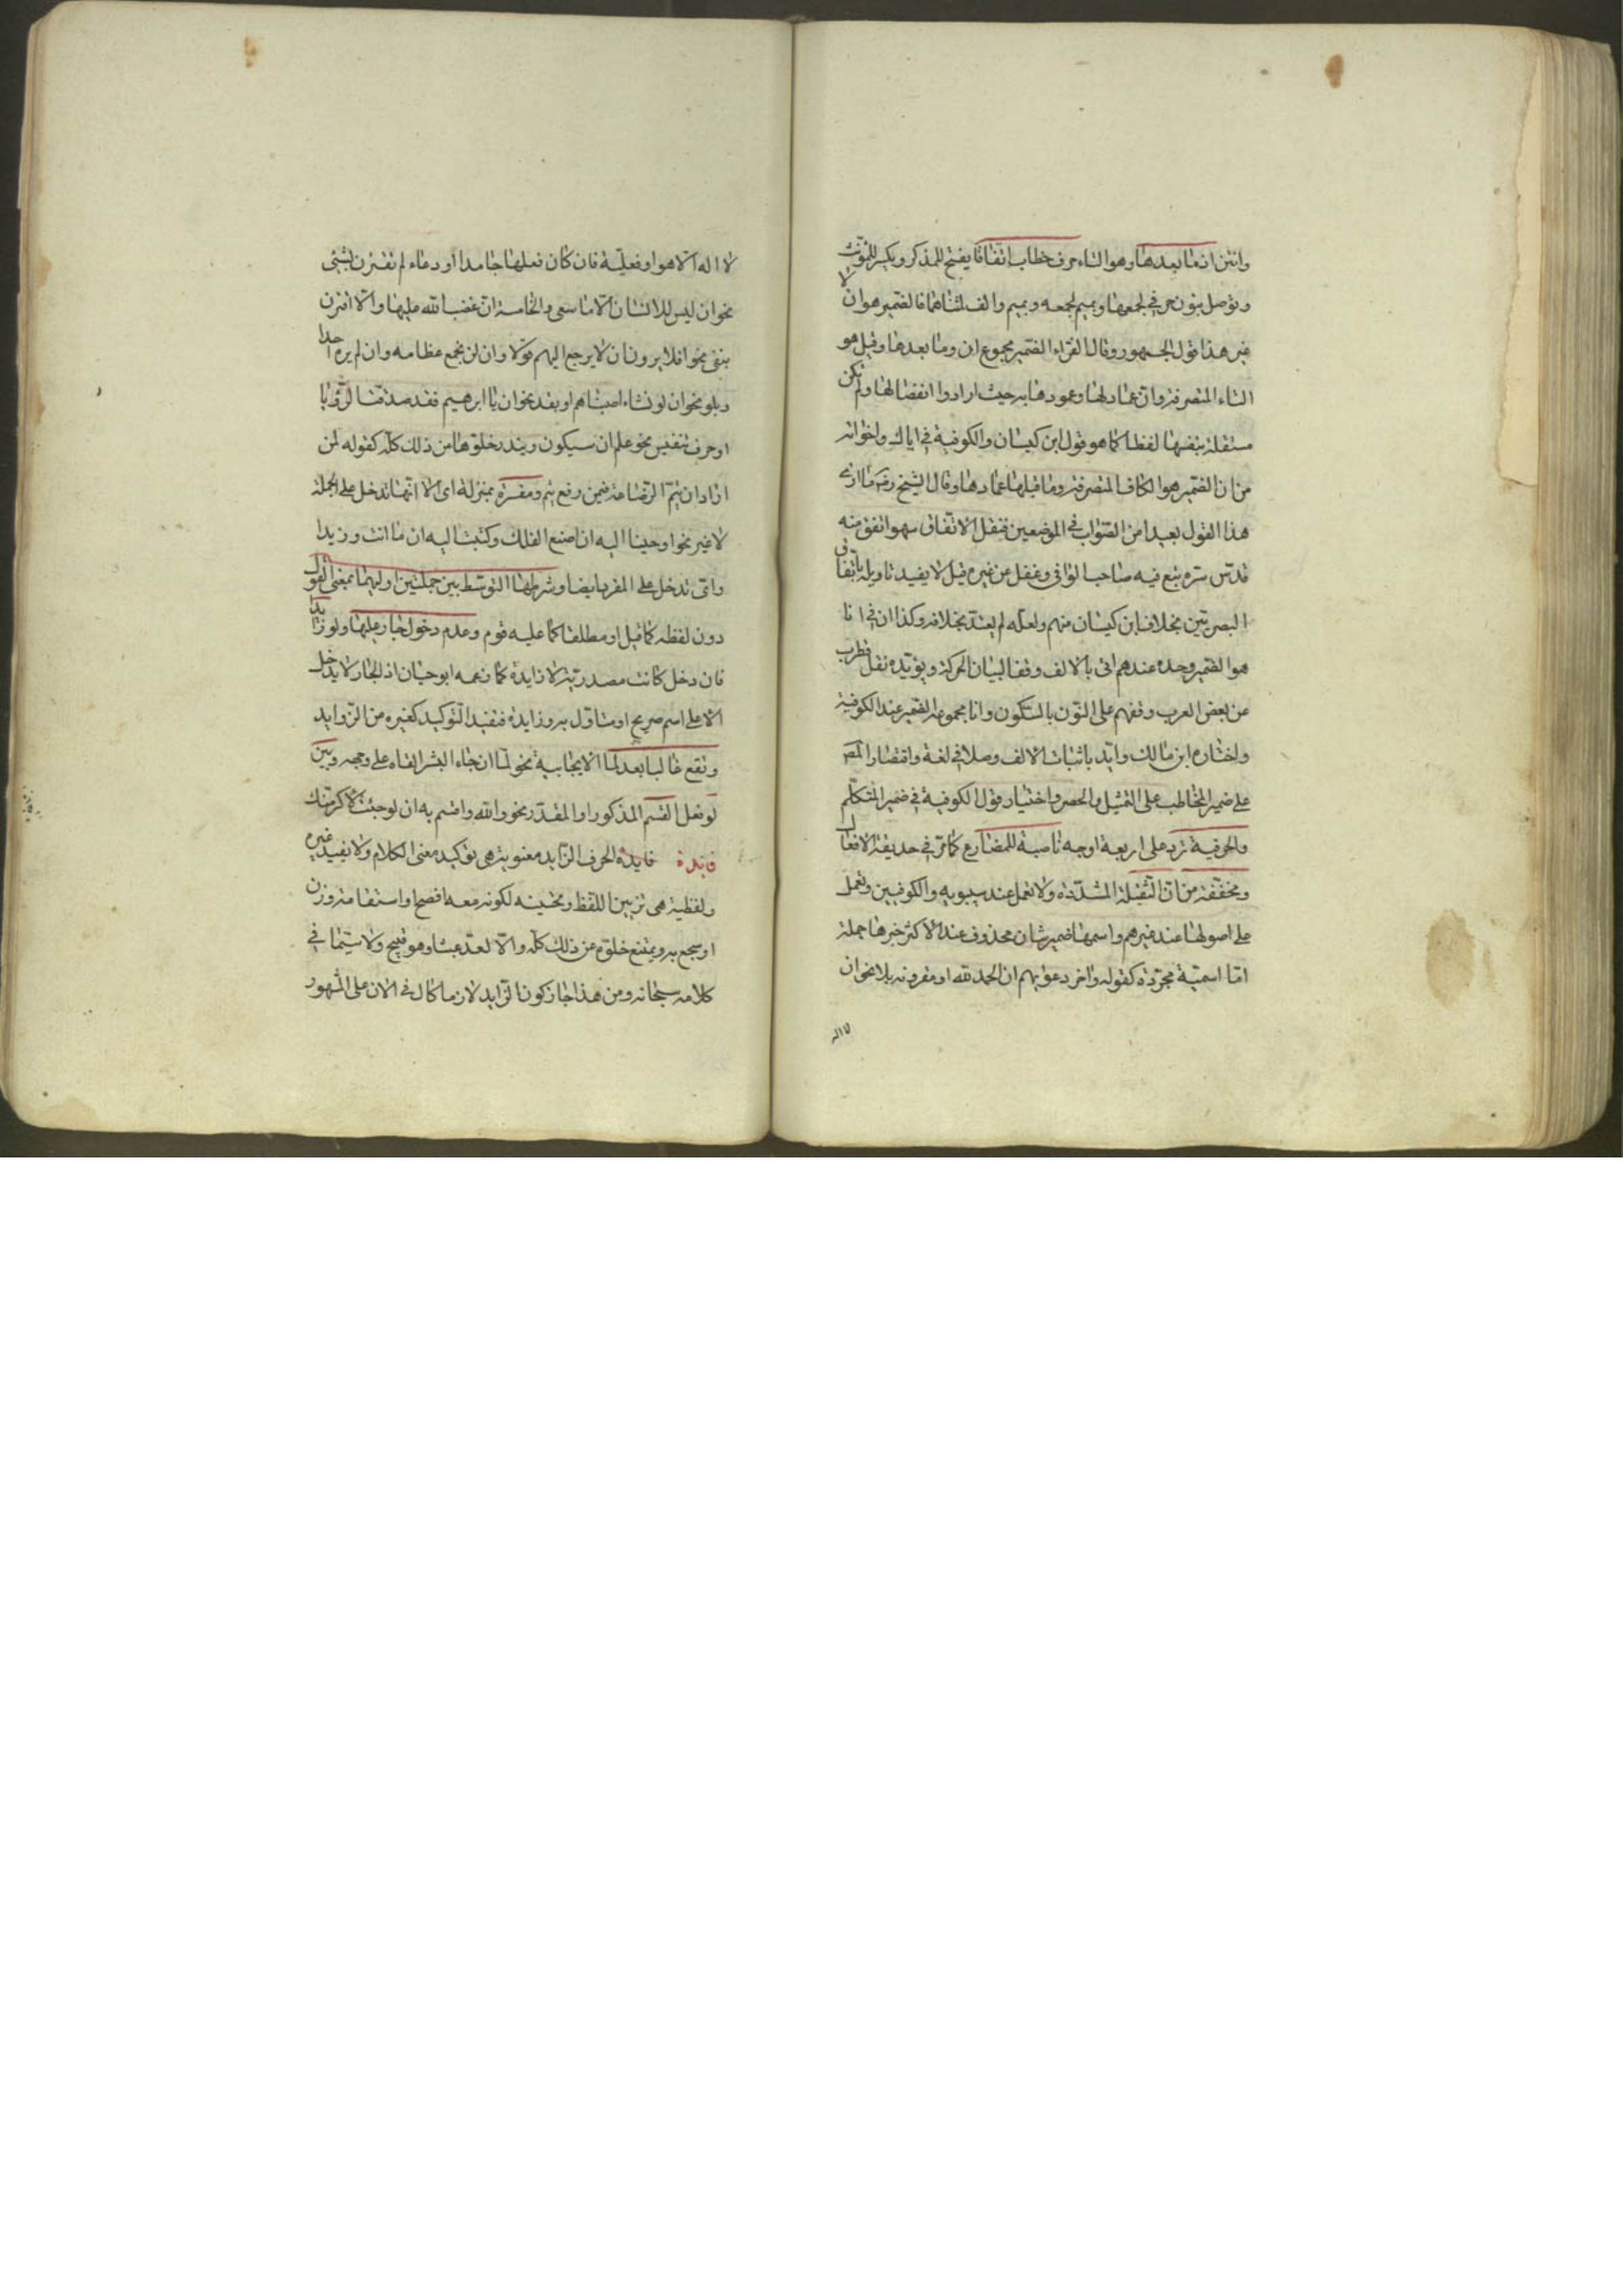 وانتن اذ ما بعدها وهو التاء حرف خطاب اتفاقا يفتح للمذكر ويكسر للمؤنث
وتوصل بنون في جمعها وبميم لجمعه وبميم والف لمثناهما فالضمير هو ان لا
غير هذا قول الجمهور وقال الفراء الضمير مجموع ان وما بعدها وقيل هو
التاء المتصرفة وان عماد لها وعمودها به حيث ارادوا انفصالها ولم تكن
مستقلة بنفسها لفظا كما هو قول ابن كيسان والكوفية في اياك واخواته
من ان الضمير هو الكاف المتصرفة وما قبلها عماد لها وقال الشيخ رضي ما ارى
هذا القول بعيدا من الصواب في الموضعين فنقل الاتفاق سهو اتفق منه
قدس سره تبع فيه صاحب الوافي وغفل عن غيره قيل لا يفيد تاويله باتفاق
البصريين بخلاف ابن كيسان منهم ولعله لم يعتد بخلافه وكذا ان في انا
هو الضمير وحده عندهم اتى بالالف وقفا لبيان الحركة ويؤيده نقل قطرب
عن بعض العرب وقفهم على النون بالسكون وانا مجموعه الضمير عند الكوفية
واختاره ابن مالك وايد باثبات الالف وصلا في لغة واقتصار المصـ
على ضمير المخاطب على التمثيل والحصر واختيار قول الكوفية في ضمير المتكلم
والحرفية ترد على اربعة اوجه ناصبة للمضارع كما مر في حديقة الافعال
ومخففة من ان الثقيلة المشددة ولا تعمل عند سيبويه والكوفيين وتعمل
على اصولها عند غيرهم واسمها ضمير شان محذوف عند الاكثر خبرها جملة
اما اسمية مجردة كقوله واخر دعويهم ان الحمد لله او مقرونه بلا نحو ان
لا اله
لا اله الا هو او فعلية فان كان فعلها جامدا او دعاء لم تقترن بشيئ
نحو ان ليس للانسان الا ما سعى والخامسة ان غضب الله عليها والا اقترن
بنفى نحو افلا يرون ان لا يرجع اليهم قولا وان لن نجمع عظامه وان لم يره احد
وبلو نحو ان لو نشاء اصبناهم او بقد نحو ان يا ابرهيم فقد صدقت الرؤيا
او حرف تنفيس نحو علم ان سيكون ويندر خلوها من ذلك كله كقوله لمن
اراد ان يتم الرضاعة فيمن رفع يتم ومفسرة بمنزلة اى الا انها تدخل على الجملة
لا غير نحو اوحينا اليه ان اصنع الفلك وكتبت اليه ان ما انت وزيدا
واى تدخل على المفرد ايضا وشرطها التوسط بين جملتين اوليهما بمعنى القول
دون لفظه كما قيل او مطلقا كما عليه قوم وعدم دخول جار عليها ولو زايدا
فان دخل كانت مصدرية لا زايدة كما زعمه ابو حيان اذ الجار لا يدخل
الا على اسم صريح او متاول به وزايدة فتفيد التوكيد كغيره من الزوايد
وتقع غالبا بعد لما الايجابية نحو لما ان جاء البشير القاه على وجهه وبين
لو وفعل القسم المذكور او المقدر نحو والله واقسم به ان لو جئت لاكرمتك
فايدة فايدة الحرف الزايد معنوية هى توكيد معنى الكلام ولا يفيد غيره
ولفظية هى تزيين اللفظ وتحسينه لكونه معه افصح او استقامة وزن
او سجع به ويمتنع خلوه عن ذلك كله والا لعد عبثا وهو قبيح ولا سيما في
كلامه سبحانه ومن هذا جاز كون الزايد لازما كال في الان على المشهور